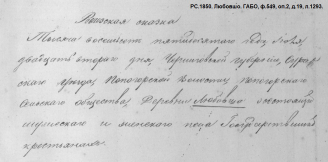 РС.1850. Любовшо. ГАБО, ф.549, оп.2, д.19, л.1293.
Ревизская сказка
Тысяча восемьсот пятидесятого года
двадцать второго дня, Черниговской губернии, Сураж-
скаго уезда, Попогорской Волости, Попогорскаго
Сельскаго общества, Деревни Любовшо о состоящих
мужескаго и женскаго пола Государственных
крестьянах.